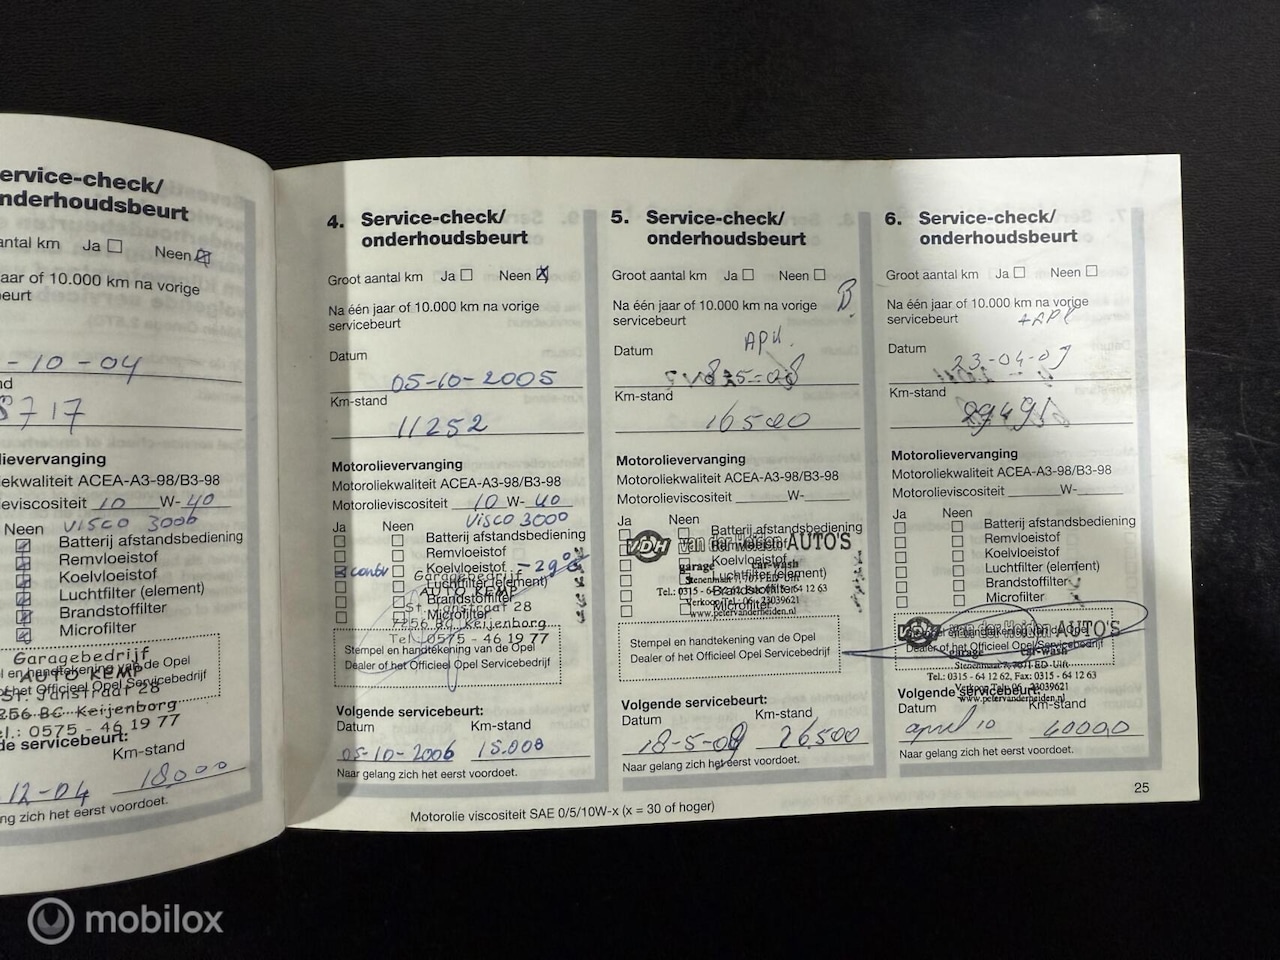 ervice-check/
nderhoudsbeurt
antal km Ja Neen
aar of 10.000 km na vorige
eurt
-10-04
nd
8717
lievervanging
iekwaliteit ACEA-A3-98/B3-98
eviscositeit 10 W- 40
Neen VISCO 3000
Batterij afstandsbediening
Remvloeistof
Koelvloeistof
Luchtfilter (element)
Brandstoffilter
Microfilter
Garagebedrijf
AUTO KEMP
St. Janstraat 28
7256 BC Keijenborg
el.: 0575 - 46 19 77
de servicebeurt:
Km-stand
12-04 18.000
ng zich het eerst voordoet.
4. Service-check/
onderhoudsbeurt
Groot aantal km Ja Neen
Na één jaar of 10.000 km na vorige
servicebeurt
Datum
05-10-2005
Km-stand
11252
Motorolievervanging
Motoroliekwaliteit ACEA-A3-98/B3-98
Motorolieviscositeit 10 W- 40
Ja Neen VISCO 3000
Batterij afstandsbediening
Remvloeistof
Koelvloeistof -29°
Luchtfilter (element)
Brandstoffilter
Microfilter
Garagebedrijf
AUTO KEMP
St. Janstraat 28
7256 BC Keijenborg
Tel. 0575 - 46 19 77
Stempel en handtekening van de Opel
Dealer of het Officieel Opel Servicebedrijf
Volgende servicebeurt:
Datum Km-stand
05-10-2006 15.000
Naar gelang zich het eerst voordoet.
5. Service-check/
onderhoudsbeurt
Groot aantal km Ja Neen
Na één jaar of 10.000 km na vorige B.
servicebeurt
APK.
Datum
Km-stand
16500
Motorolievervanging
Motoroliekwaliteit ACEA-A3-98/B3-98
Motorolieviscositeit W-
Ja Neen
Batterij afstandsbediening
Remvloeistof
Koelvloeistof
Luchtfilter (element)
Brandstoffilter
Microfilter
VDH van der Heiden AUTO'S
garage car-wash
Stenenmaat 7, 7071 ED Ulft
Tel.: 0315 - 64 12 62, Fax: 0315 - 64 12 63
Verkoop Tel.: 06 - 23039621
www.petervanderheiden.nl
Stempel en handtekening van de Opel
Dealer of het Officieel Opel Servicebedrijf
Volgende servicebeurt:
Datum Km-stand
18-5-09 26500
Naar gelang zich het eerst voordoet.
6. Service-check/
onderhoudsbeurt
Groot aantal km Ja Neen
Na één jaar of 10.000 km na vorige
servicebeurt +APK
Datum
23-04-09
Km-stand
Motorolievervanging
Motoroliekwaliteit ACEA-A3-98/B3-98
Motorolieviscositeit W-
Ja Neen
Batterij afstandsbediening
Remvloeistof
Koelvloeistof
Luchtfilter (element)
Brandstoffilter
Microfilter
VDH van der Heiden AUTO'S
garage car-wash
Stenenmaat 7, 7071 ED Ulft
Tel.: 0315 - 64 12 62, Fax: 0315 - 64 12 63
Verkoop Tel.: 06 - 23039621
www.petervanderheiden.nl
Dealer of het Officieel Opel Servicebedrijf
Volgende servicebeurt:
Datum Km-stand
april 10 40000
Naar gelang zich het eerst voordoet.
25
Motorolie viscositeit SAE 0/5/10W-x (x = 30 of hoger)
mobilox